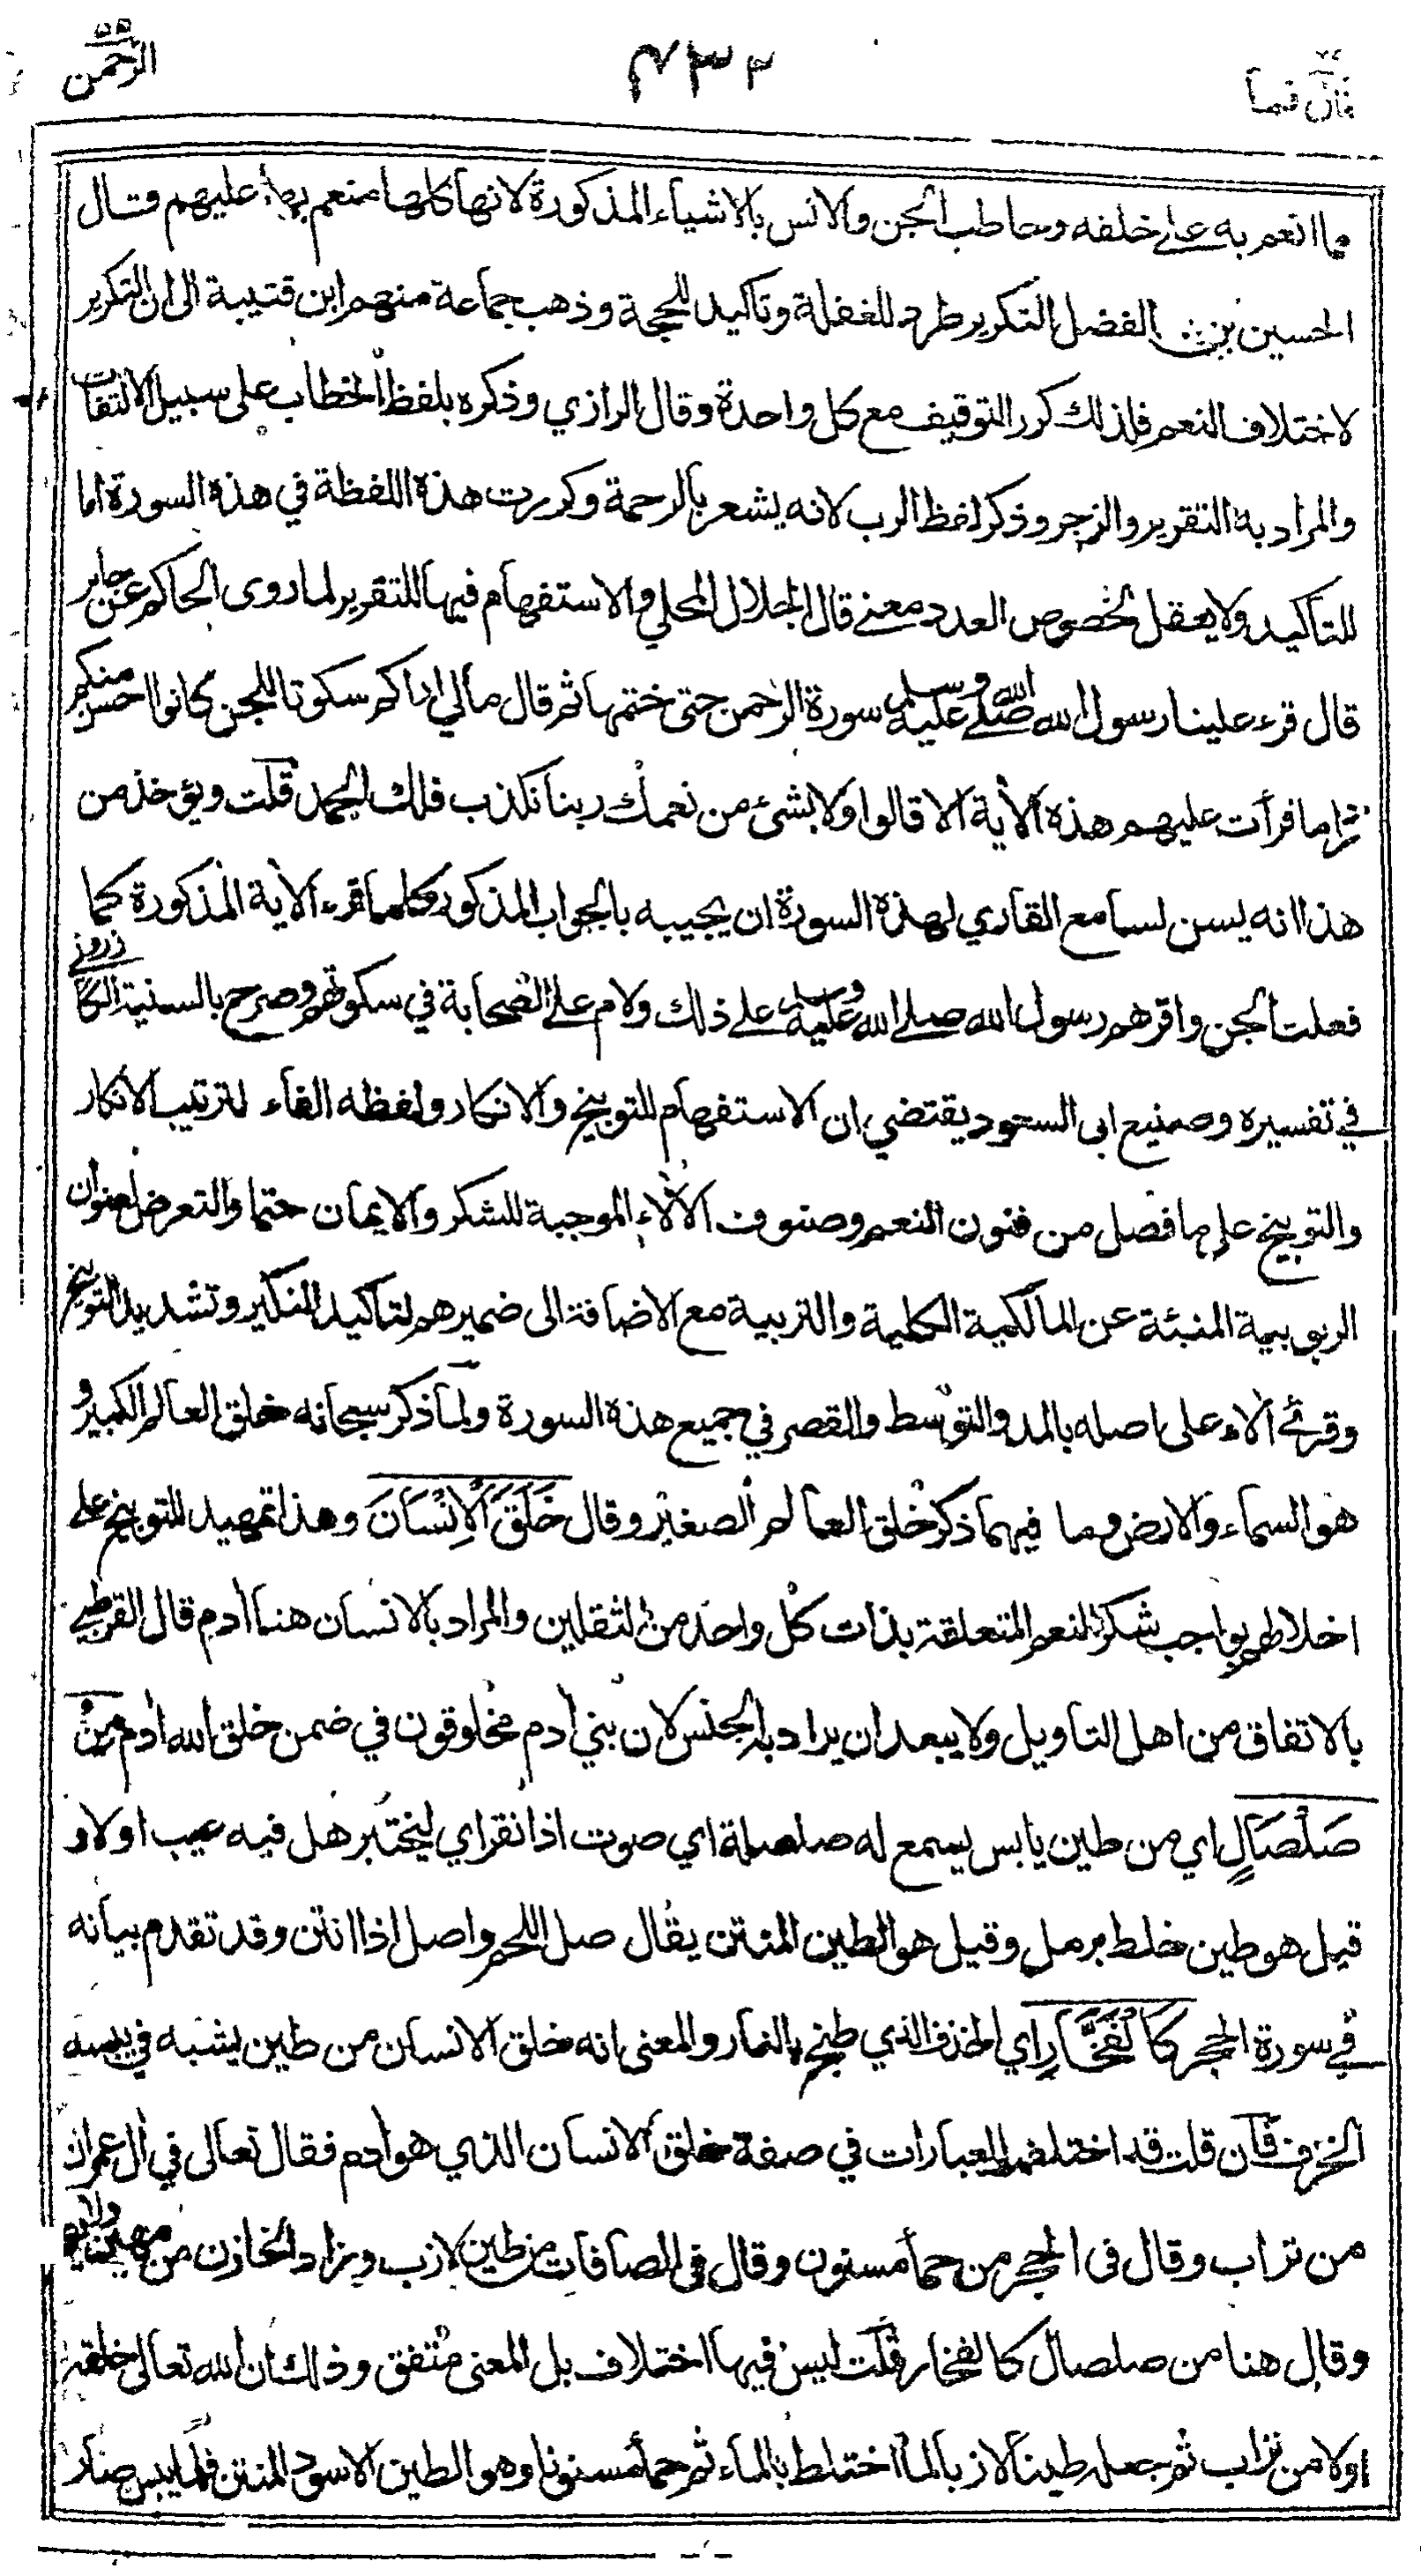 الرحمن ٥٥
قال فما
مما انعم به على خلقه وخاطب الجن والانس بالاشياء المذكورة لانها كلها منعم بها عليهم وقال
الحسين بن الفضل التكرير طرد للغفلة وتاكيد للحجة وذهب جماعة منهم ابن قتيبة الى ان التكرير
لاختلاف النعم فلذلك كرر التوقيف مع كل واحدة وقال الرازي وذكره بلفظ الخطاب على سبيل الالتفات
والمراد به التقرير والزجر وذكر لفظ الرب لانه يشعر بالرحمة وكررت هذه اللفظة في هذه السورة اما
للتاكيد ولا يعقل لخصوص العدد معنى قال الجلال المحلي والاستفهام فيها للتقرير لما روى الحاكم عن جابر
قال قرء علينا رسول الله صلى الله عليه وسلم سورة الرحمن حتى ختمها ثم قال مالي اراكم سكوتا للجن كانوا احسن منكم
ردا ما قرأت عليهم هذه الاية الا قالوا ولا بشئ من نعمك ربنا نكذب فلك الحمد قلت ويؤخذ من
هذا انه يسن لسامع القاري لهذه السورة ان يجيبه بالجواب المذكور كلما قرء الاية المذكورة كما
فعلت الجن واقرهم رسول الله صلى الله عليه وسلم على ذلك ولام على الصحابة في سكوتهم وصرح بالسنية الكازروني
في تفسيره وصنيع ابى السعود يقتضي ان الاستفهام للتوبيخ والانكار ولفظه الفاء لترتيب الانكار
والتوبيخ على ما فصل من فنون النعم وصنوف الألاء الموجبة للشكر والايمان حتما والتعرض لعنوان
الربوبية المنبئة عن المالكية الكلية والتربية مع الاضافة الى ضميرهم لتاكيد النكير وتشديد التوبيخ
وقرئ ألاء على اصله بالمد والتوسط والقصر في جميع هذه السورة ولما ذكر سبحانه خلق العالم الكبير و
هو السماء والارض وما فيهما ذكر خلق العالم الصغير وقال خَلَقَ الْاِنْسَانَ وهذا تمهيد للتوبيخ على
اخلالهم بواجب شكر النعم المتعلقة بذات كل واحد من الثقلين والمراد بالانسان هنا أدم قال القرطبي
بالاتفاق من اهل التاويل ولا يبعد ان يراد به الجنس لان بني أدم مخلوقون في ضمن خلق الله أدم مِنْ
صَلْصَالٍ اي من طين يابس يسمع له صلصلة اي صوت اذا نقر اي ليختبر هل فيه عيب اولا و
قيل هو طين خلط برمل وقيل هو الطين المنتن يقال صل اللحم واصل اذا انتن وقد تقدم بيانه
في سورة الحجر كَالْفَخَّارِ اي الخذف الذي طبخ بالنار والمعنى انه خلق الانسان من طين يشبه في يبسه
الخزف فان قلت قد اختلفت العبارات في صفة خلق الانسان الذي هو أدم فقال تعالى في أل عمران
من تراب وقال فى الحجر من حمأ مسنون وقال في الصافات من طين لازب وزاد الخازن من
وقال هنا من صلصال كالفخار قلت ليس فيها اختلاف بل المعنى متفق وذلك ان الله تعالى خلقه
اولا من تراب ثم جعله طينا لازبا لما اختلط بالماء ثم حمأ مسنونا وهو الطين الاسود المنتن فلما يبس صار